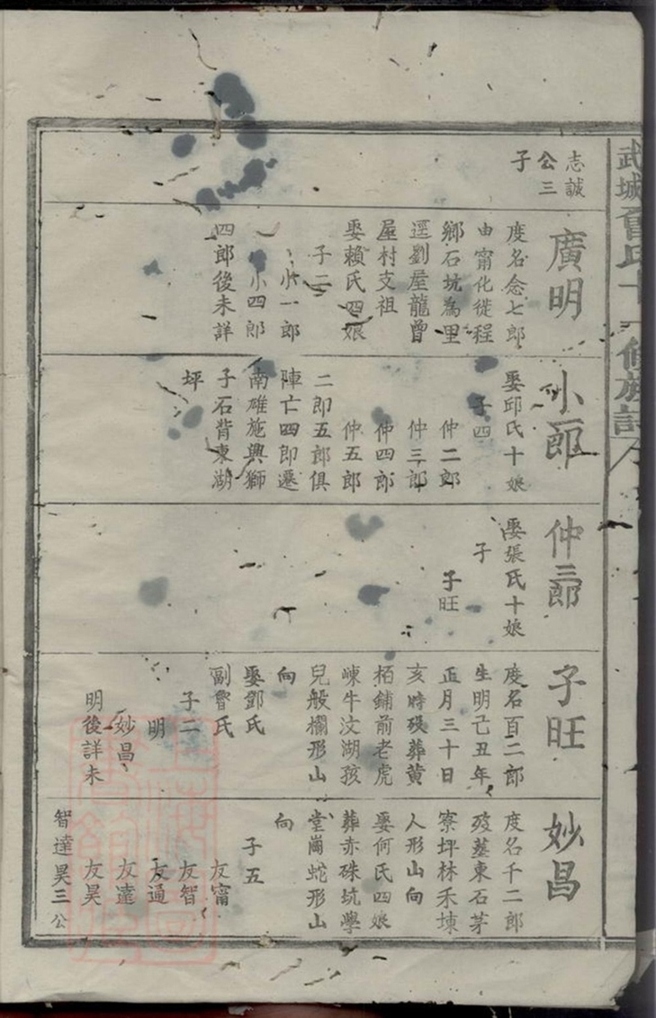 武城曾氏十一修族譜
志誠
公三
子
廣明
度名念七郎
由甯化徙程
鄉石坑為里
逕劉屋龍曾
屋村支祖
娶賴氏四娘
子二
小一郎
小四郎
四郎後未詳
小一郎
娶邱氏十娘
子四
仲二郎
仲三郎
仲四郎
仲五郎
二郎五郎俱
陣亡四郎遷
南碓施興獅
子石背東湖
坪
仲三郎
娶張氏十娘
子
子旺
子旺
度名百二郎
生明己丑年
正月三十日
亥時歿葬黄
栢鋪前老虎
崠牛汶湖孩
兒般欄形山
向
娶鄧氏
副曾氏
子二
明
妙昌
明後詳未
妙昌
度名千二郎
歿塟東石茅
寮坪林禾堜
人形山向
娶何氏四娘
葬赤硃坑學
堂崗蛇形山
向
子五
友甯
友智
友通
友達
友昊
智達昊三公